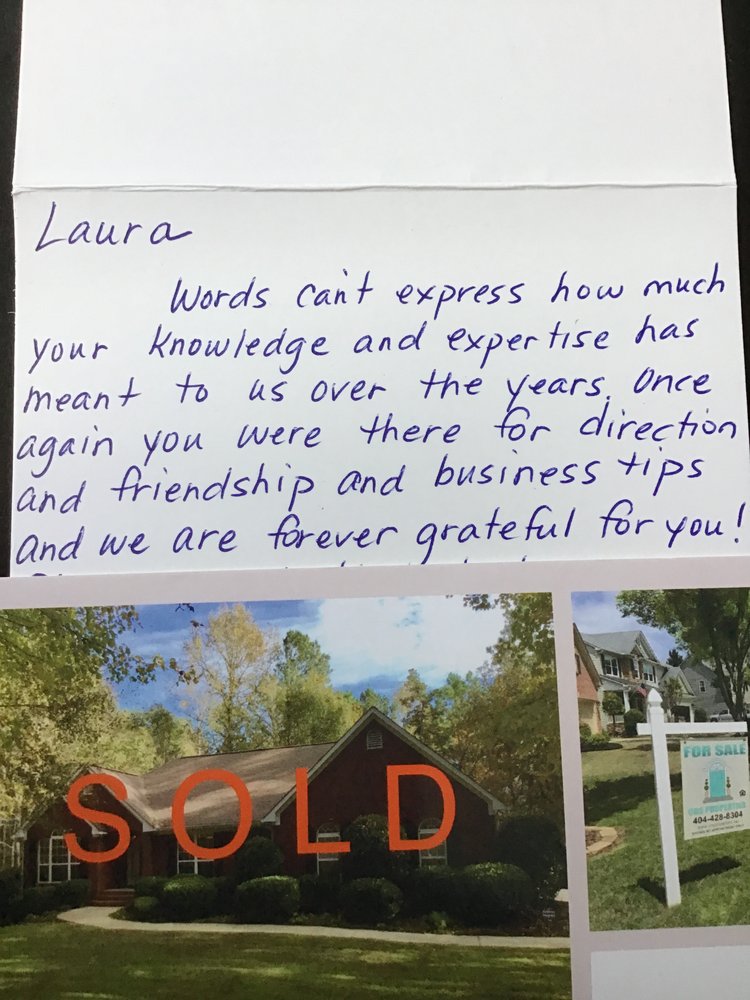 Laura
Words can't express how much
your knowledge and expertise has
meant to us over the years. Once
again you were there for direction
and friendship and business tips
and we are forever grateful for you!
SOLD
FOR SALE
404-428-8304